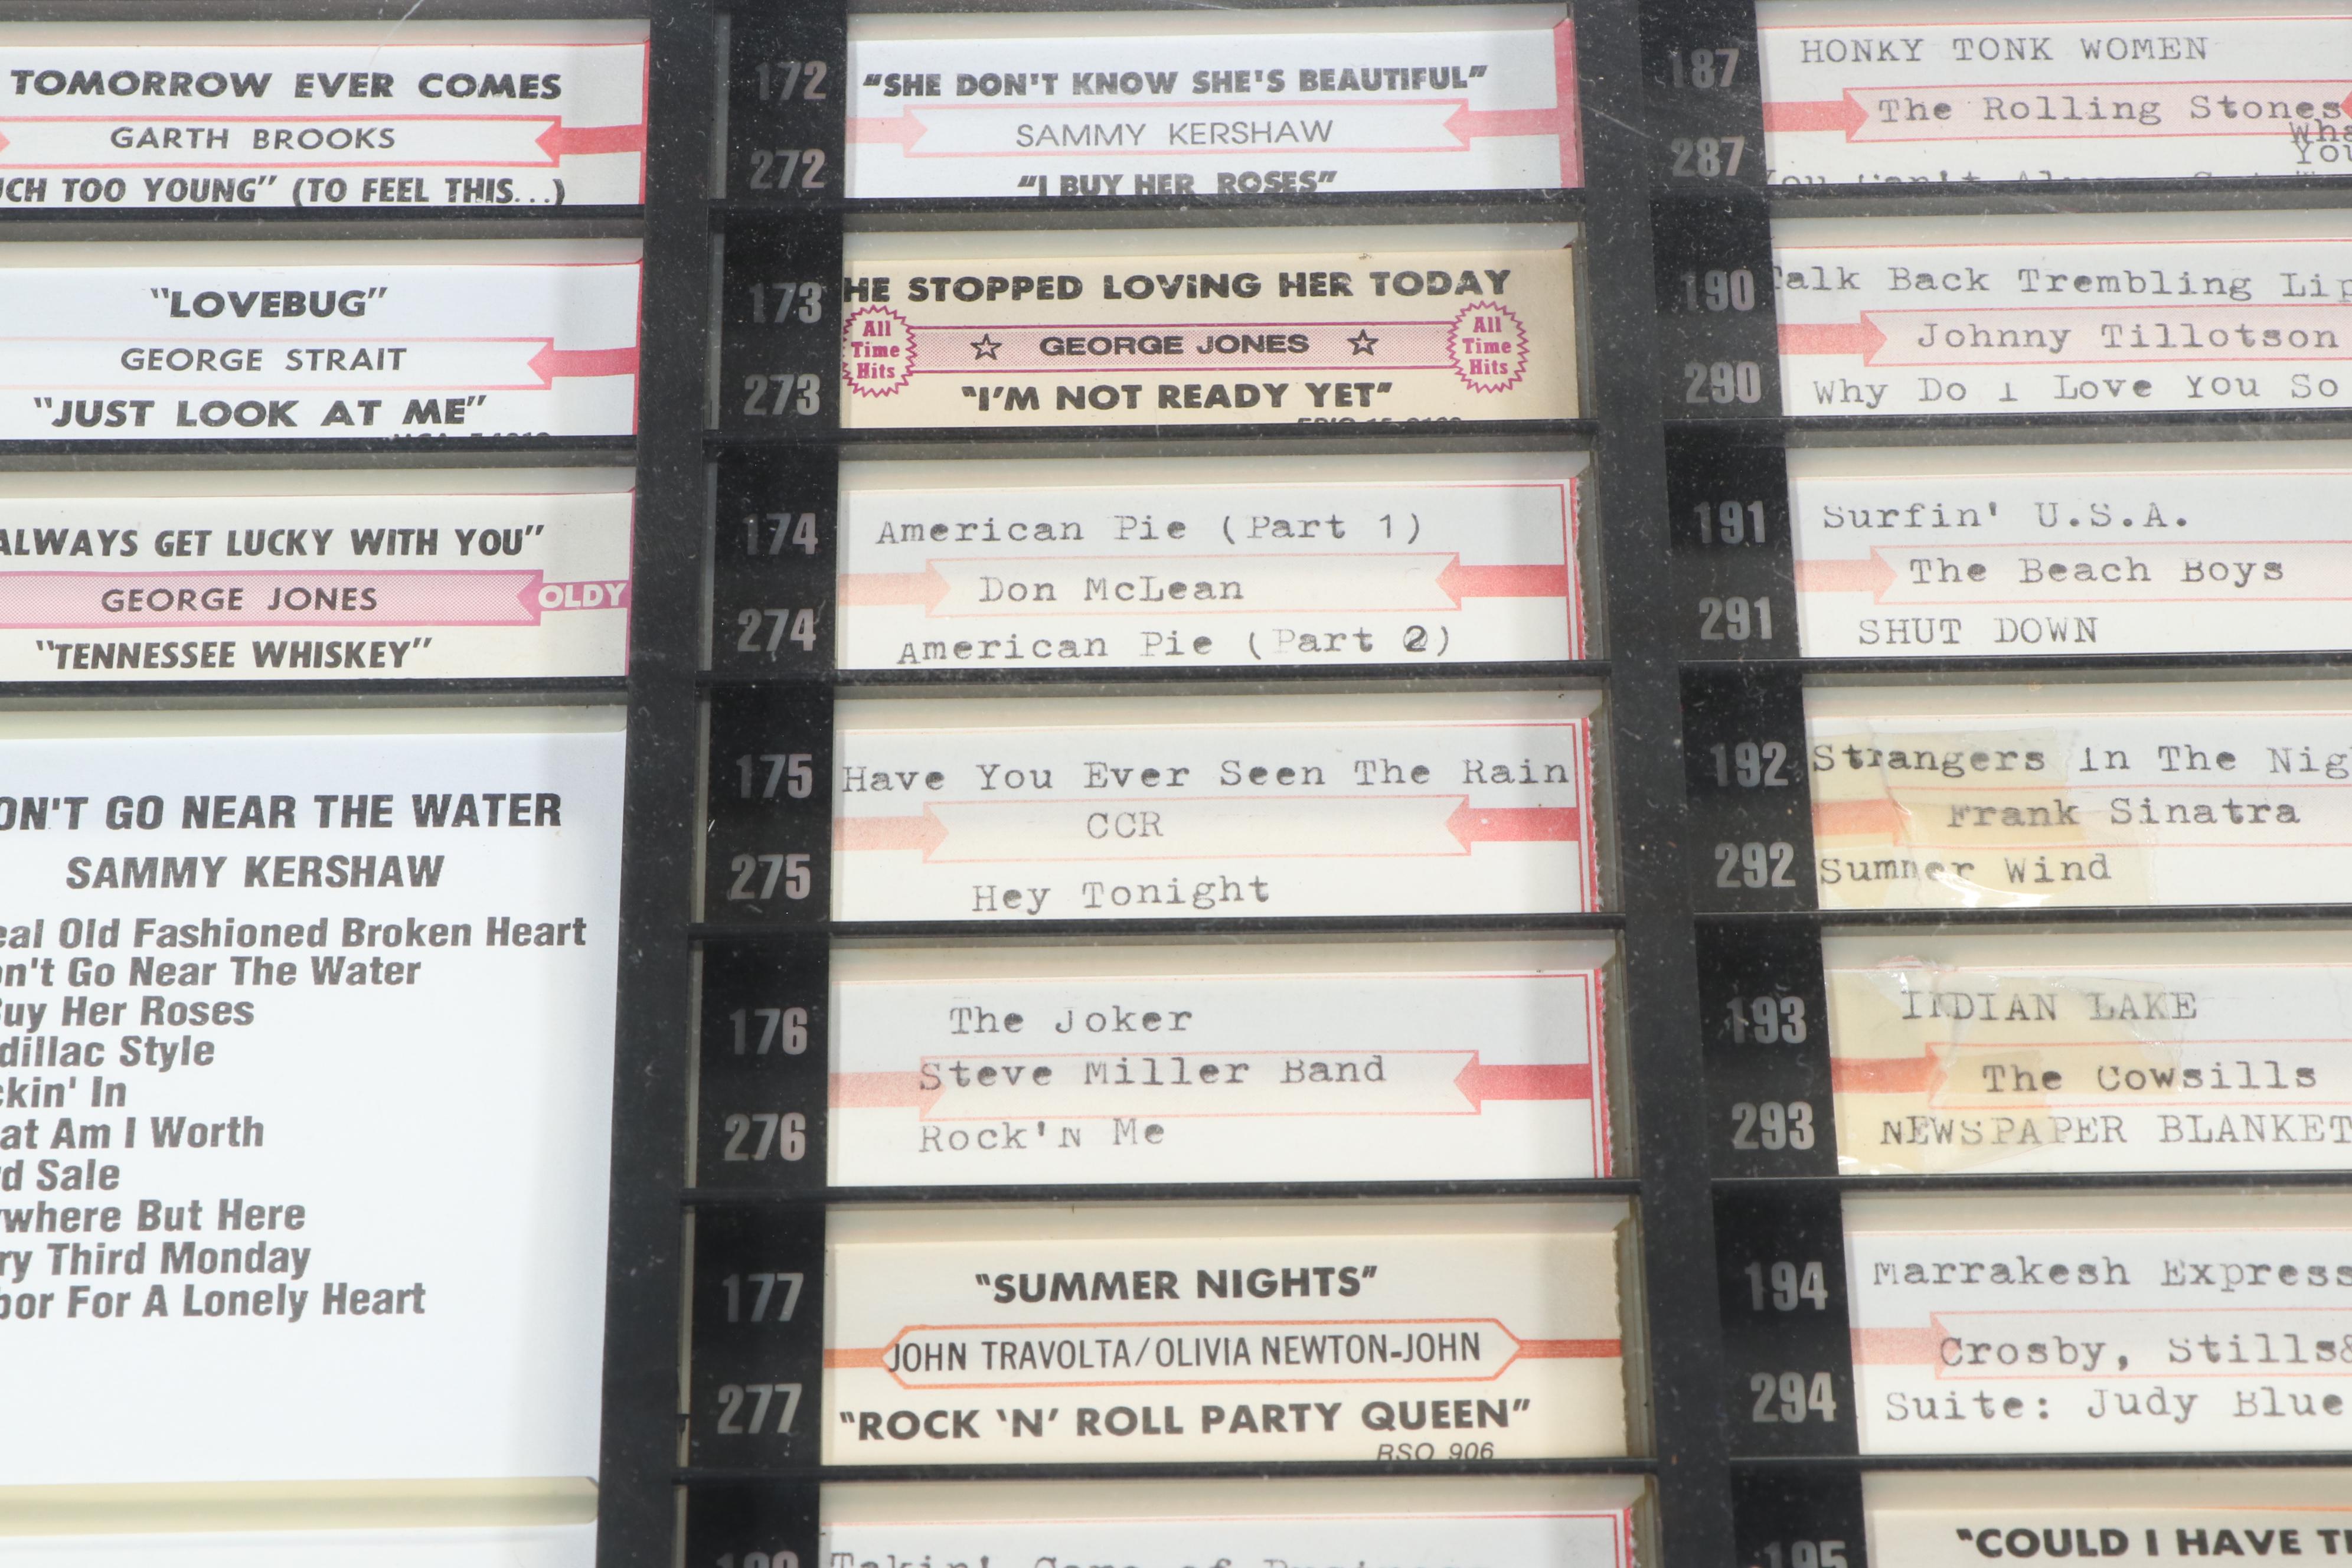 TOMORROW EVER COMES
GARTH BROOKS
CH TOO YOUNG" (TO FEEL THIS...)
"LOVEBUG"
GEORGE STRAIT
"JUST LOOK AT ME"
ALWAYS GET LUCKY WITH YOU"
GEORGE JONES
OLDY
"TENNESSEE WHISKEY"
ON'T GO NEAR THE WATER
SAMMY KERSHAW
eal Old Fashioned Broken Heart
on't Go Near The Water
Buy Her Roses
dillac Style
ckin' In
at Am I Worth
rd Sale
ywhere But Here
ry Third Monday
oor For A Lonely Heart
172
"SHE DON'T KNOW SHE'S BEAUTIFUL"
SAMMY KERSHAW
272
"I BUY HER ROSES"
173
HE STOPPED LOVING HER TODAY
All Time Hits
GEORGE JONES
All Time Hits
273
"I'M NOT READY YET"
174
American Pie (Part 1)
Don McLean
274
American Pie (Part 2)
175
Have You Ever Seen The Rain
CCR
275
Hey Tonight
176
The Joker
Steve Miller Band
276
Rock'N Me
177
"SUMMER NIGHTS"
JOHN TRAVOLTA/OLIVIA NEWTON-JOHN
277
"ROCK 'N' ROLL PARTY QUEEN"
RSO 906
187
HONKY TONK WOMEN
The Rolling Stones
287
Wha
You
190
Talk Back Trembling Lip
Johnny Tillotson
290
Why Do I Love You So
191
Surfin' U.S.A.
The Beach Boys
291
SHUT DOWN
192
Strangers in The Nig
Frank Sinatra
292
Summer Wind
193
INDIAN LAKE
The Cowsills
293
NEWSPAPER BLANKET
194
Marrakesh Express
Crosby, Stills&
294
Suite: Judy Blue
195
"COULD I HAVE T